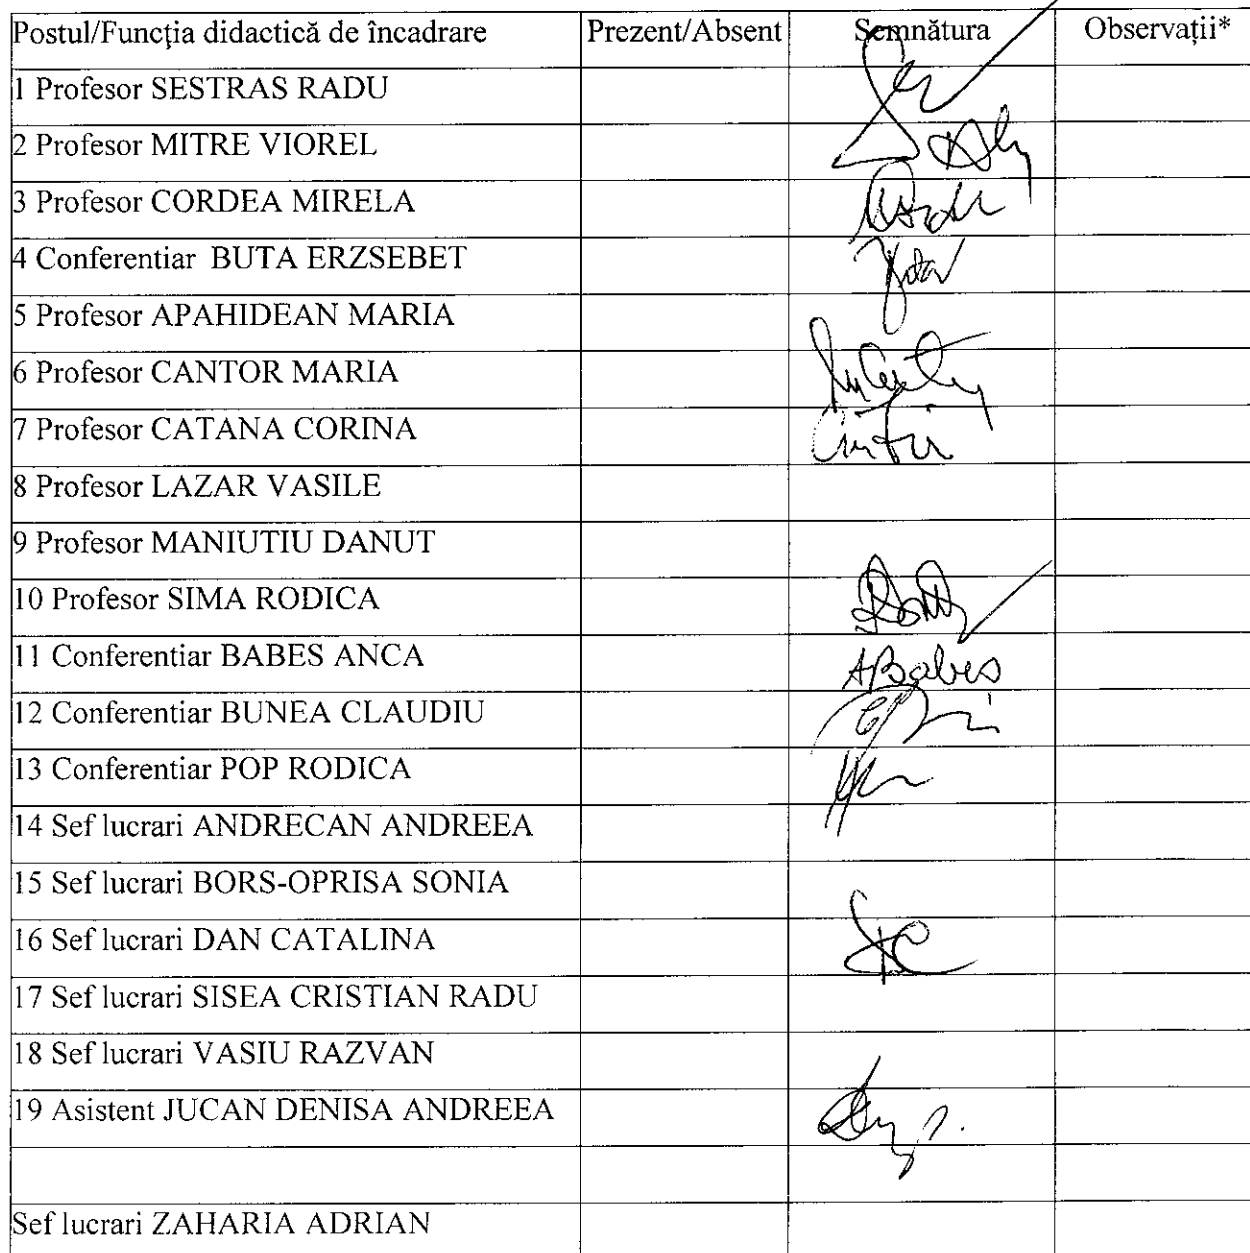 Postul/Funcția didactică de încadrare Prezent/Absent Semnătura Observații*
1 Profesor SESTRAS RADU
2 Profesor MITRE VIOREL
3 Profesor CORDEA MIRELA
4 Conferentiar BUTA ERZSEBET
5 Profesor APAHIDEAN MARIA
6 Profesor CANTOR MARIA
7 Profesor CATANA CORINA
8 Profesor LAZAR VASILE
9 Profesor MANIUTIU DANUT
10 Profesor SIMA RODICA
11 Conferentiar BABES ANCA ABabes
12 Conferentiar BUNEA CLAUDIU
13 Conferentiar POP RODICA
14 Sef lucrari ANDRECAN ANDREEA
15 Sef lucrari BORS-OPRISA SONIA
16 Sef lucrari DAN CATALINA
17 Sef lucrari SISEA CRISTIAN RADU
18 Sef lucrari VASIU RAZVAN
19 Asistent JUCAN DENISA ANDREEA
Sef lucrari ZAHARIA ADRIAN